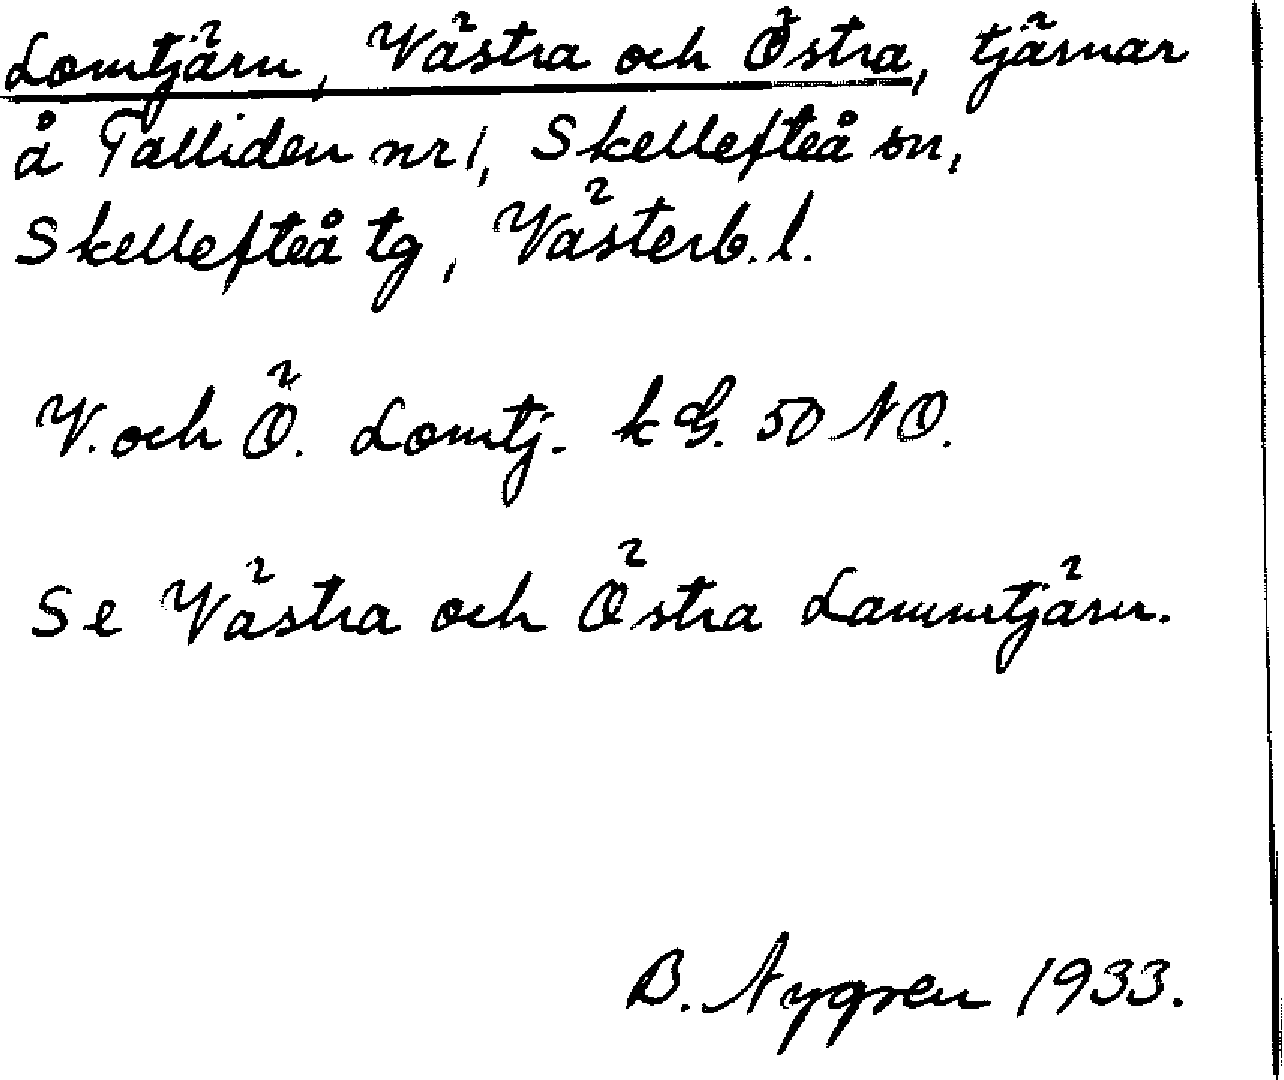 Lomtjärn, Västra och Östra, tjärnar
å Talliden nr 1, Skellefteå sn,
Skellefteå tg, Västerb. l.
V. och Ö. Lomtj. k G. 50 NO.
Se Västra och Östra Lammtjärn.
B. Nygren 1933.